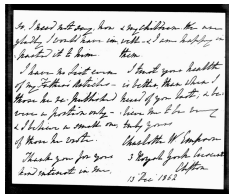 So, I need not say, how
gladly I would have im
parted it to him.
I have no list even
of my Father's
those he re-published
were a portion only -
& I believe a small one
of those he wrote.
Thank you for your
kind interest in me,
& my children. We are
well - & I am happy in
them
I trust your health
is better than when I
heard of you last, & be-
lieve me to be very
truly yours
Charlotte W
3 Royal York Crescent
Clifton
15 Dec 1862